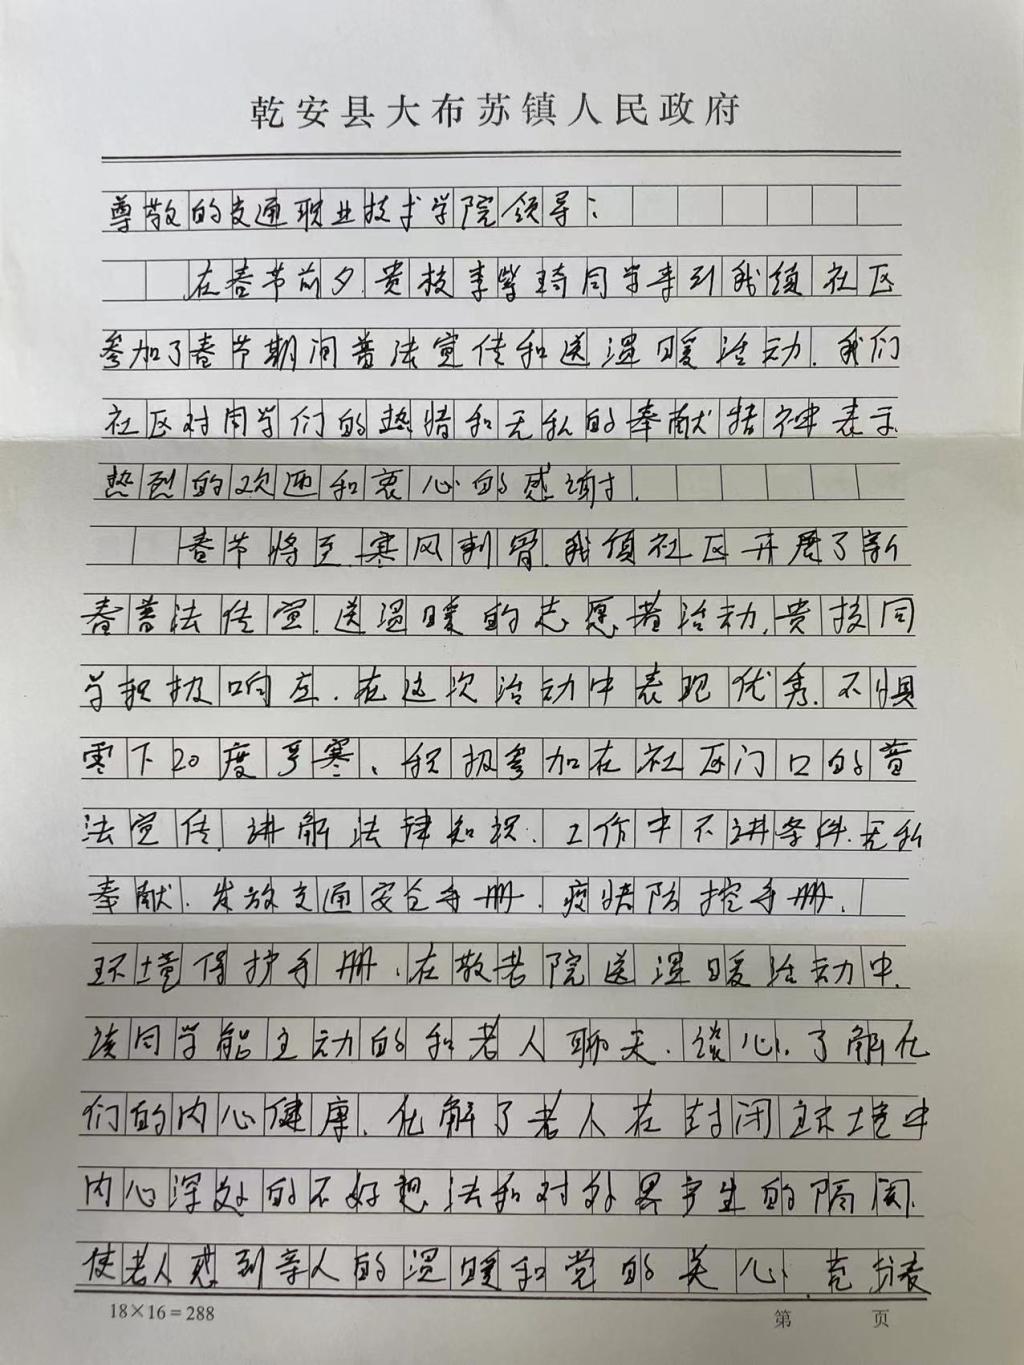 乾安县大布苏镇人民政府
尊敬的交通职业技术学院领导：
在春节前夕.贵校李紫琦同学来到我镇社区
参加了春节期间普法宣传和送温暖活动.我们
社区对同学们的热情和无私的奉献精神表示
热烈的欢迎和衷心的感谢.
春节将至.寒风刺骨.我镇社区开展了新
春普法传宣.送温暖的志愿者活动,贵校同
学积极响应.在这次活动中表现优秀.不惧
零下20度严寒、积极参加在社区门口的普
法宣传.讲解法律知识.工作中不讲条件.无私
奉献.发放交通安全手册.疫情防控手册.
环境保护手册.在敬老院送温暖活动中.
该同学能主动的和老人聊天.谈心.了解他
们的内心健康.化解了老人在封闭环境中
内心深处的不好想法和对外界产生的隔阂.
使老人感到亲人的温暖和党的关心.充分表
18×16=288
第 页